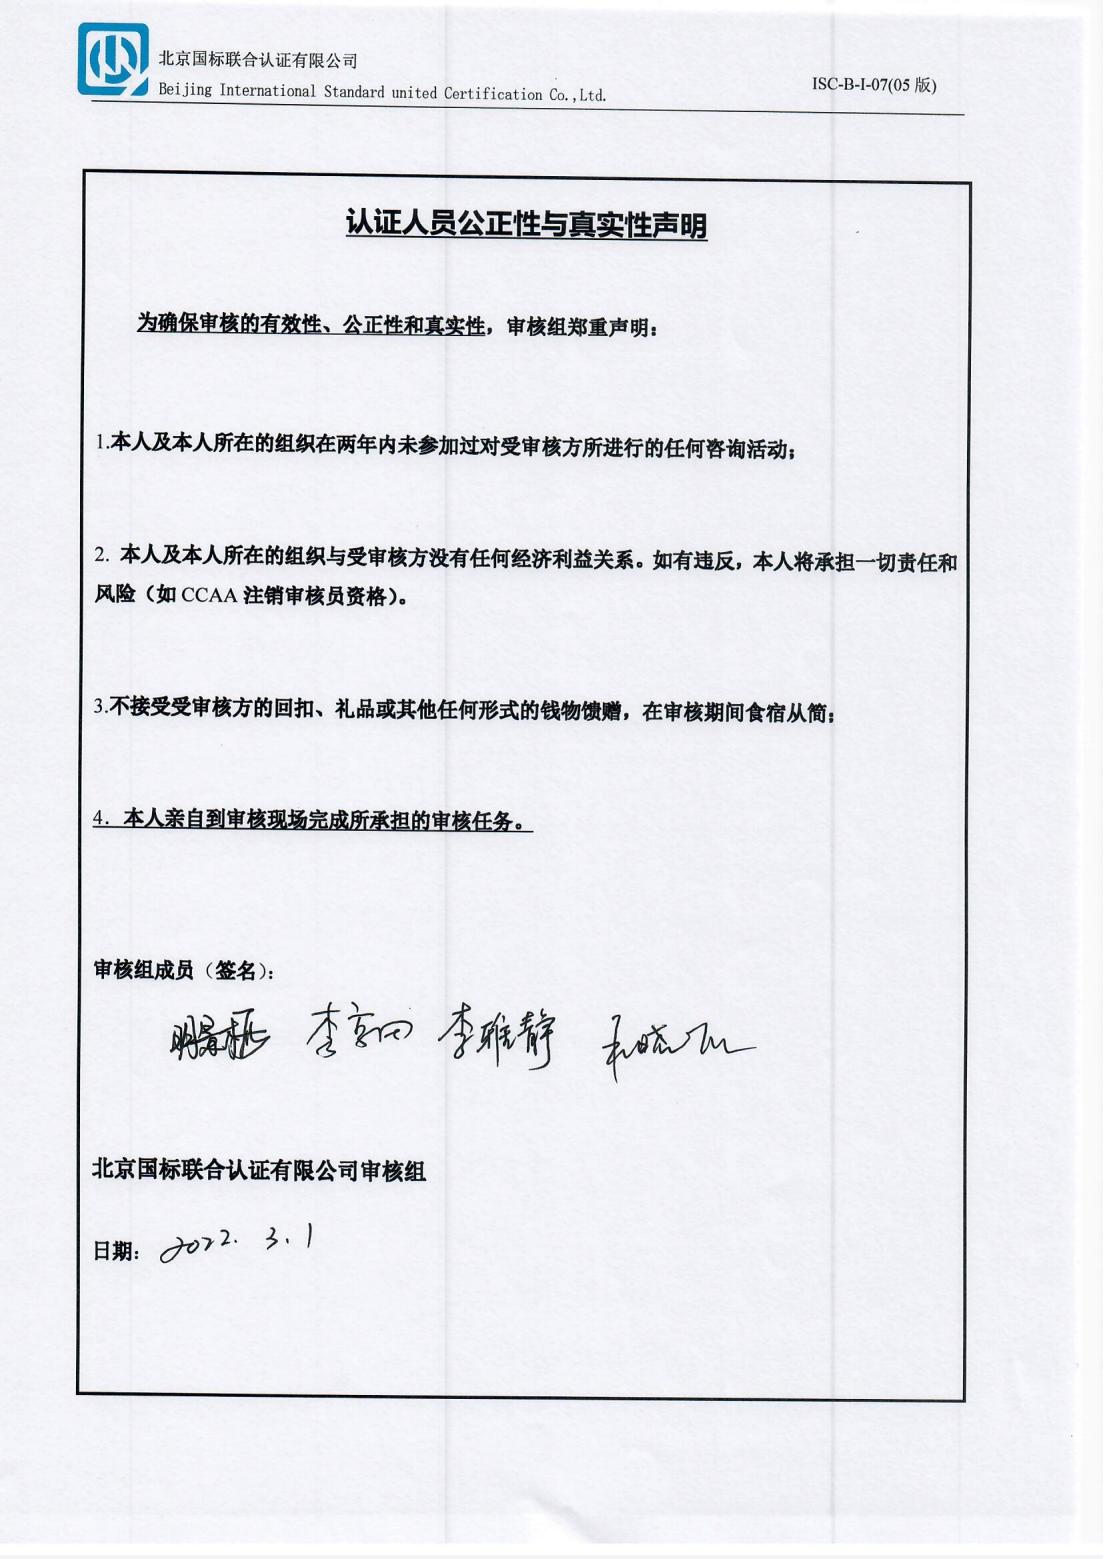 北京国标联合认证有限公司
Beijing International Standard united Certification Co.,Ltd.
ISC-B-I-07(05 版)
认证人员公正性与真实性声明
为确保审核的有效性、公正性和真实性，审核组郑重声明：
1.本人及本人所在的组织在两年内未参加过对受审核方所进行的任何咨询活动；
2. 本人及本人所在的组织与受审核方没有任何经济利益关系。如有违反，本人将承担一切责任和
风险（如 CCAA 注销审核员资格）。
3.不接受受审核方的回扣、礼品或其他任何形式的钱物馈赠，在审核期间食宿从简；
4．本人亲自到审核现场完成所承担的审核任务。
审核组成员（签名）：
李雅静
北京国标联合认证有限公司审核组
日期： 2022. 3. 1